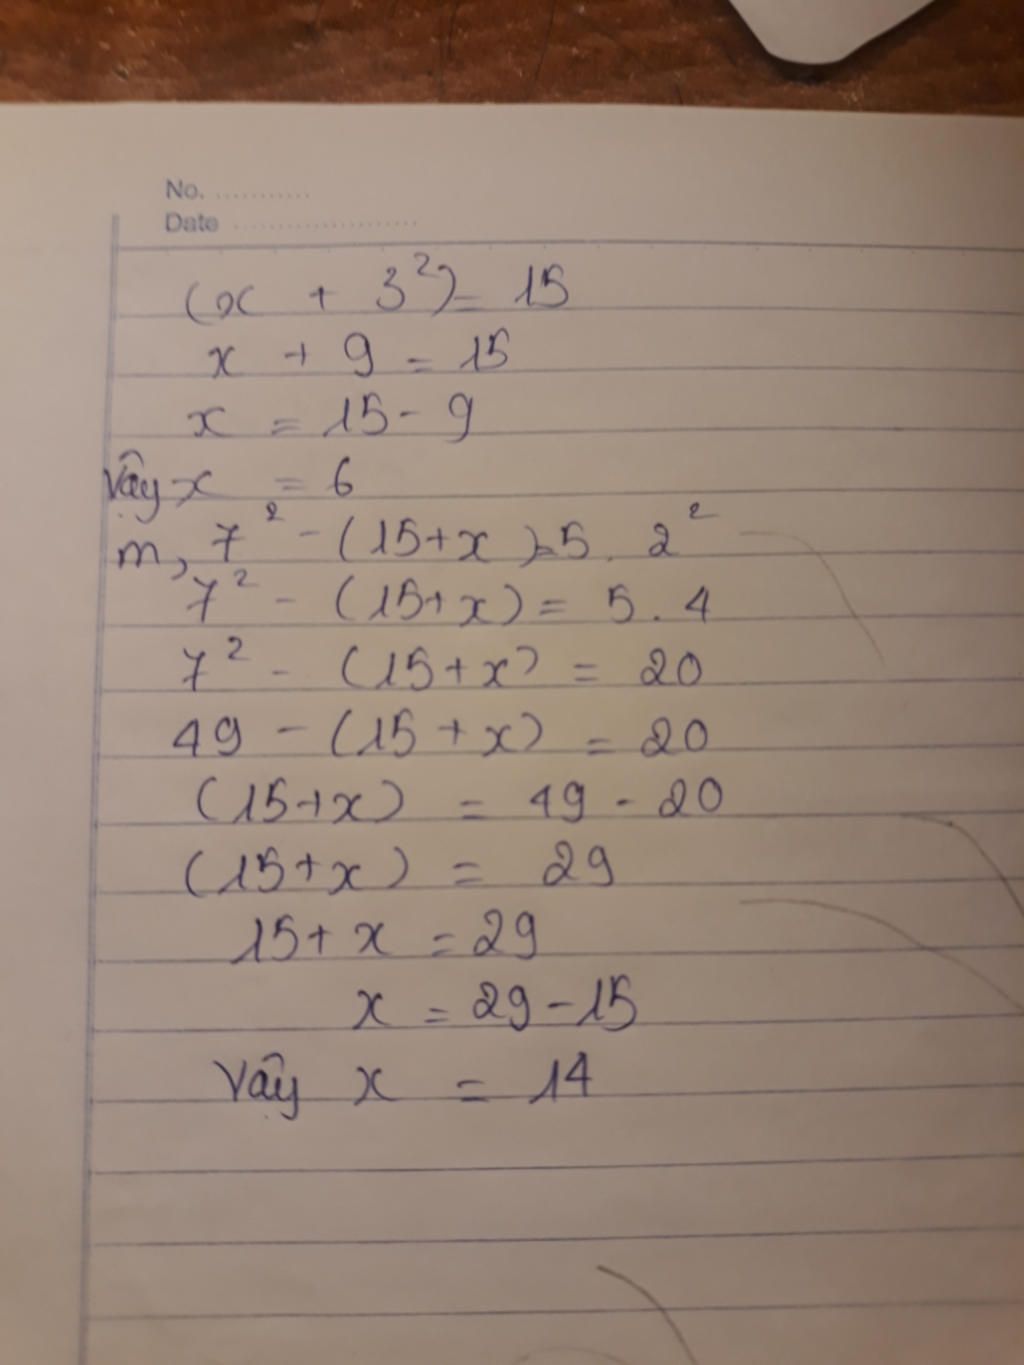 No. ...........
Date .....................
(x + 3²) = 15
x + 9 = 15
x = 15 - 9
Vậy x = 6
m, 7² - (15+x) = 5. 2²
7² - (15+x) = 5. 4
7² - (15+x) = 20
49 - (15+x) = 20
(15+x) = 49 - 20
(15+x) = 29
15+ x = 29
x = 29 - 15
Vậy x = 14